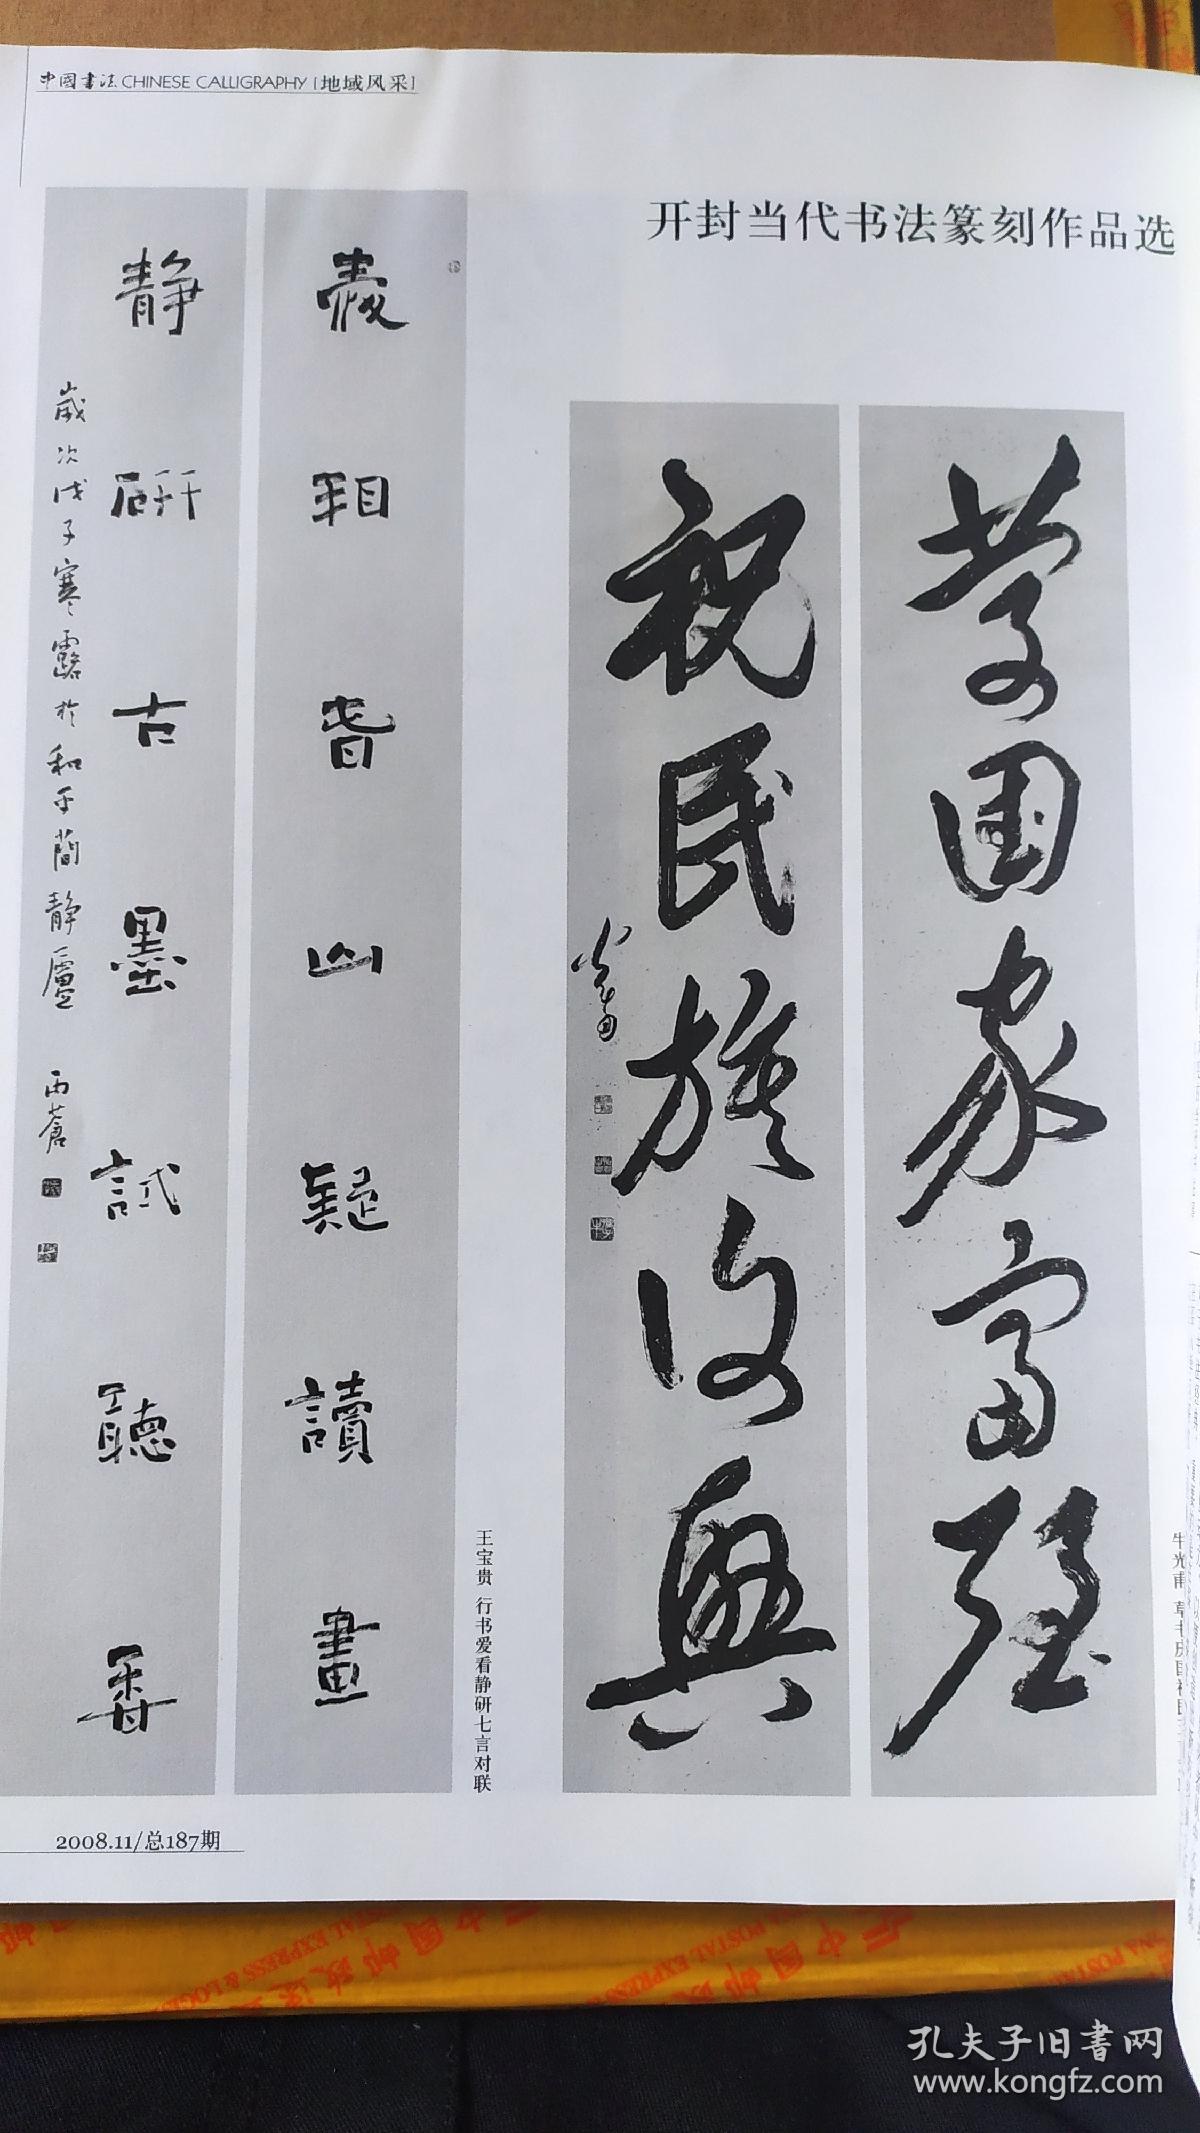 中國書法 CHINESE CALLIGRAPHY [地域风采]
开封当代书法篆刻作品选
慶国家富强
祝民族復興
光甫
愛看春山疑讀畫
静研古墨試聽香
歲次戊子寒露於和平簡静廬 西蒼
王宝贵 行书爱看静研七言对联
牛光甫 草书庆国祝民
2008.11/总187期
孔夫子旧书网
www.kongfz.com